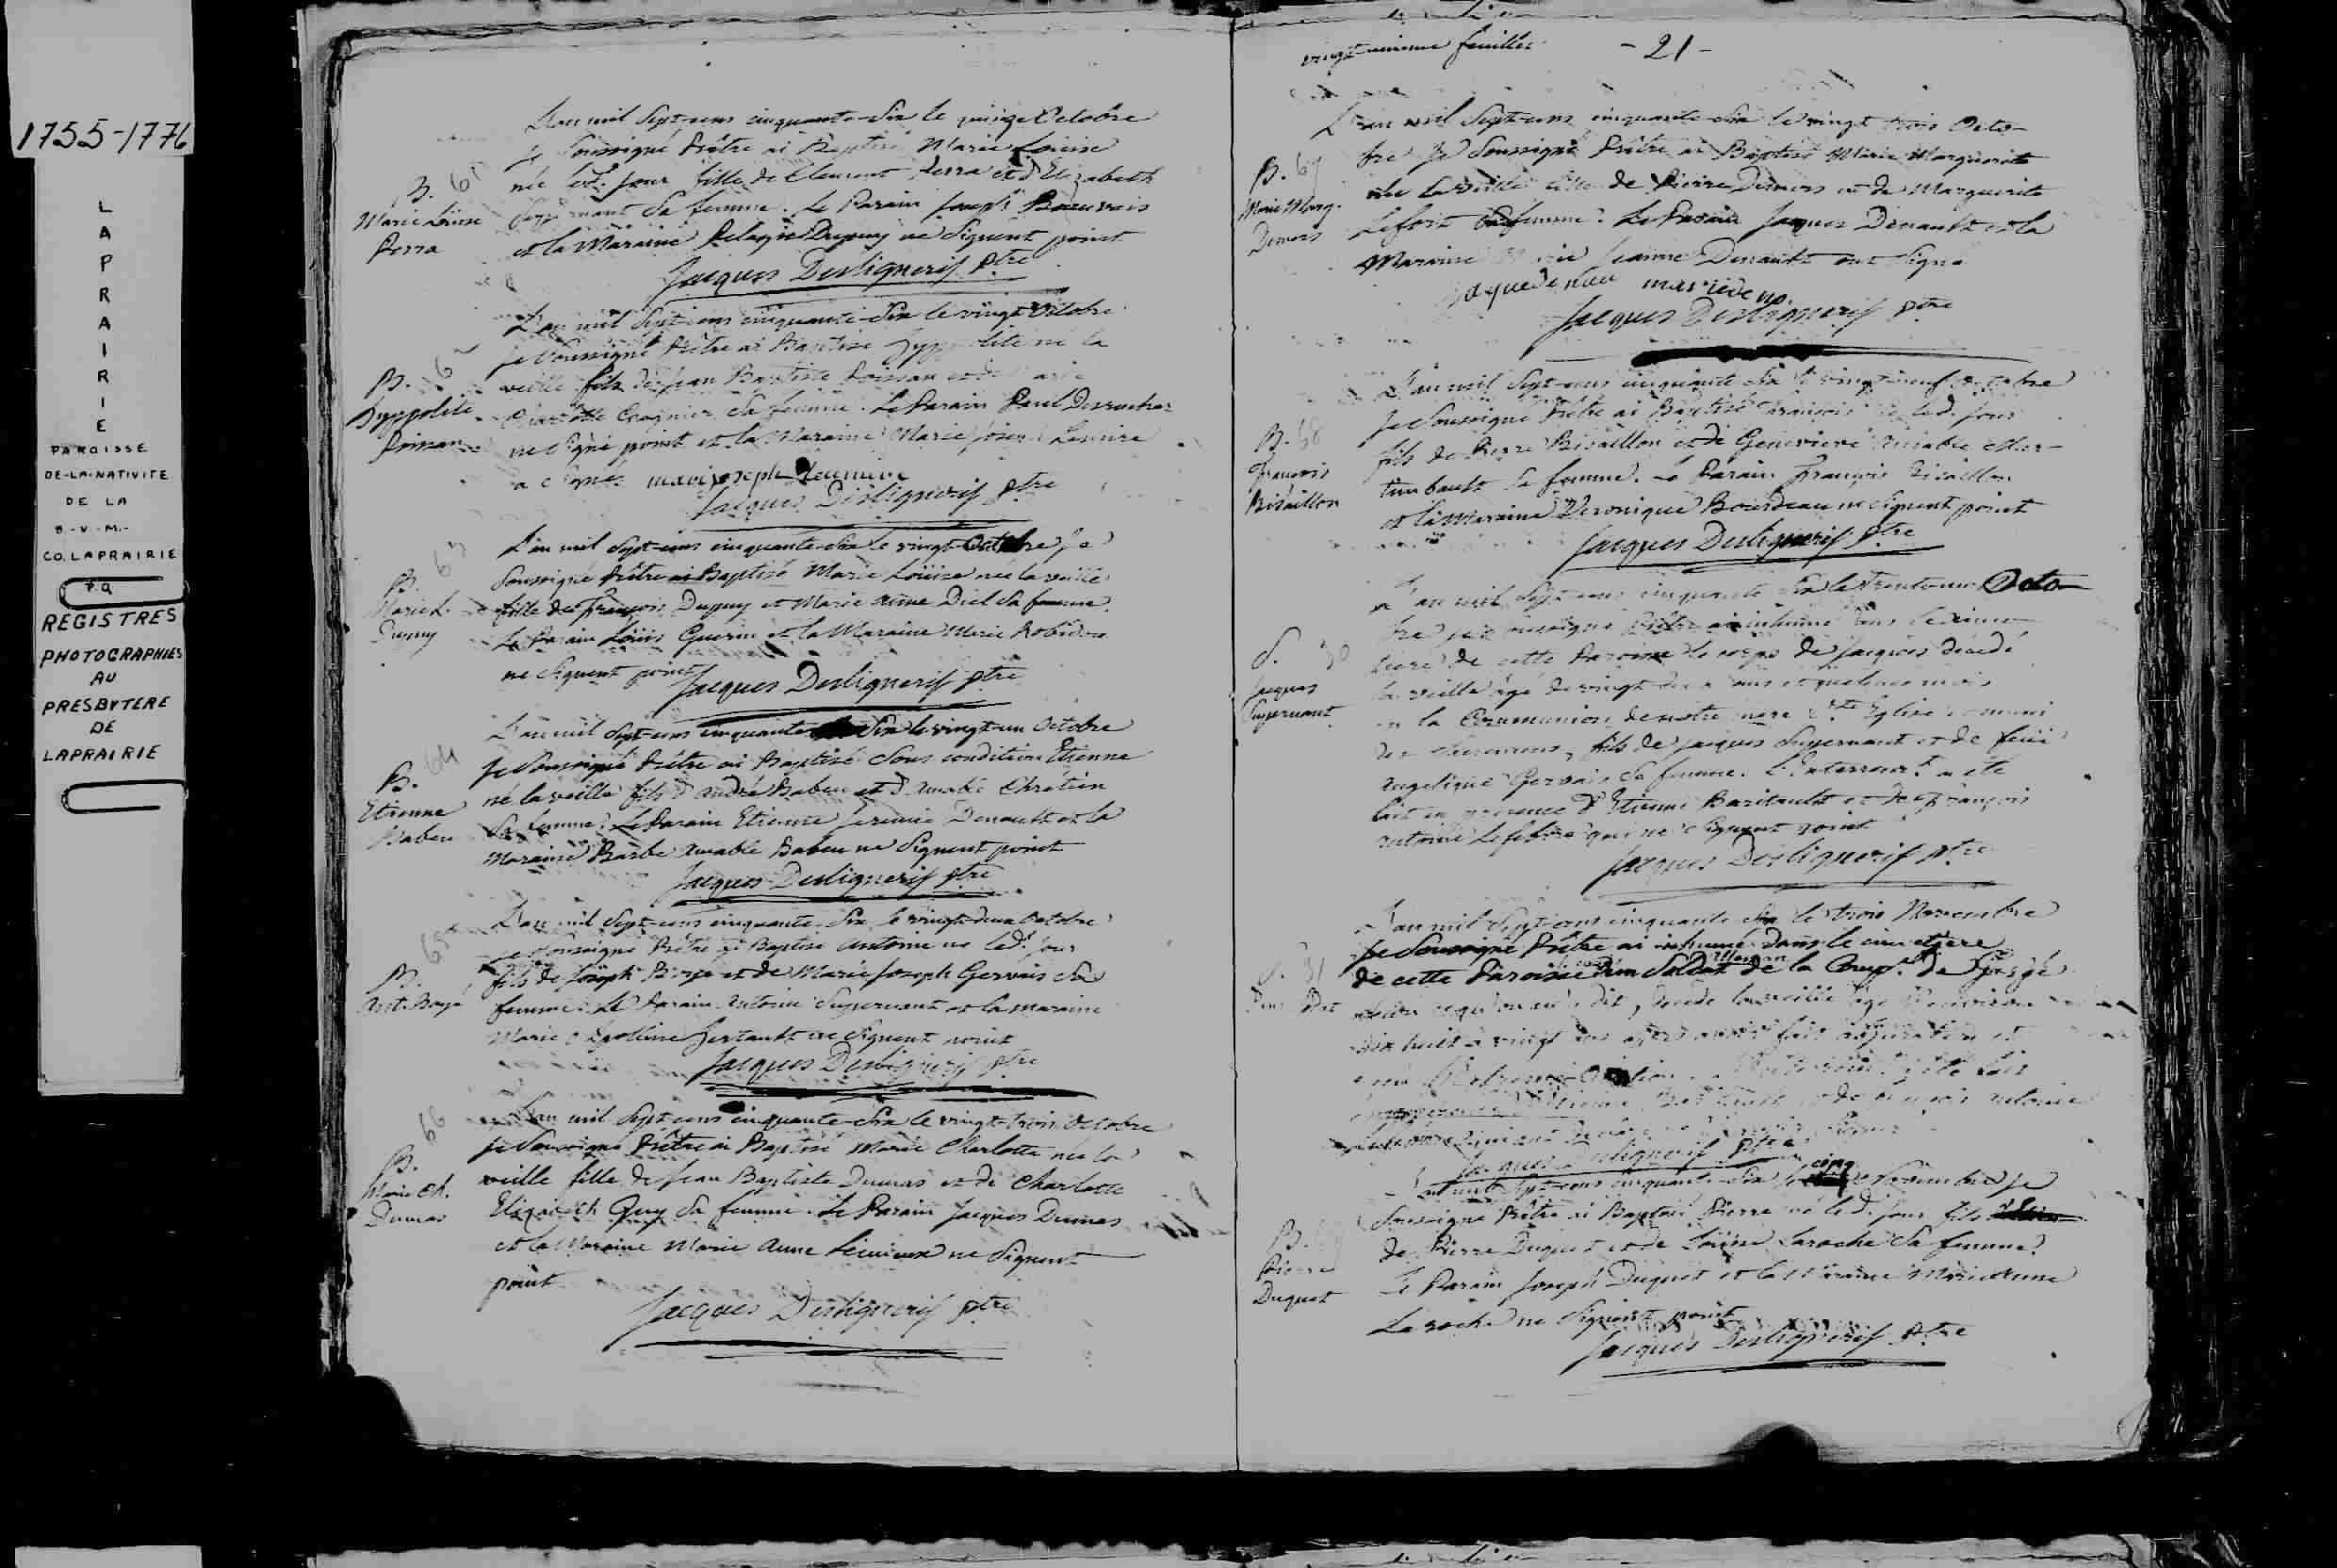 1755-1776
L
A
P
R
A
I
R
I
E
PAROISSE
DE-LA-NATIVITE
DE LA
B.-V.-M.-
CO. LAPRAIRIE
P.Q
REGISTRES
PHOTOGRAPHIES
AU
PRESBYTERE
DE
LAPRAIRIE
L'an mil Sept-cens cinquante-Six le quinze Octobre
je Soussigné Prêtre ai Baptisé Marie Loüise
née led. jour fille de Clement Perra et d'Elizabeth
B. 61
Marie Loüise
Perra
Supernant Sa femme. Le Parain Joseph Beauvais
et la Maraine Pelagie Dupuy ne Signent point
Jacques Desligneris ptre
L'an mil Sept-cens cinquante-Six le vingt Octobre
je Soussigné Prêtre ai Baptisé hyppolite né la
B. 62
hyppolite
Poissan
veille fils de Jean Baptiste Poissan et de Marie
Charlotte Sa femme. Le Parain Paul Desrocher
ne Signe point et la Maraine Marie Joseph
a Signé. marie joseph
Jacques Desligneris ptre
L'an mil Sept-cens cinquante-Six le vingt Octobre je
Soussigné Prêtre ai Baptisé Marie Loüise née la veille
B. 63
Marie L.
Dupuy
fille de François Dupuy et Marie Anne Diel Sa femme.
Le Parain Loüis Guerin et la Maraine Marie Robidou
ne Signent point
Jacques Desligneris ptre
L'an mil Sept-cens cinquante Six le vingt-un Octobre
je Soussigné Prêtre ai Baptisé Sous condition Etienne
B. 64
Etienne
Babeu
né la veille fils d'André Babeu et d'Amable Chrétien
Sa femme. Le Parain Etienne Jeremie Denault et la
Maraine Barbe Amable Babeu ne Signent point
Jacques Desligneris ptre
L'an mil Sept-cens cinquante-Six le vingt-deux Octobre
je Soussigné Prêtre ai Baptisé Antoine né led. jour
B. 65
Ant. Boyé
fils de Joseph Boyé et de Marie Joseph Gervais Sa
femme. Le Parain Antoine Supernant et la maraine
Marie Apolline ne Signent point
Jacques Desligneris ptre
L'an mil Sept-cens cinquante-Six le vingt-trois Octobre
je Soussigné Prêtre ai Baptisé Marie Charlotte née la
B. 66
Marie Ch.
Dumas
veille fille de Jean Baptiste Dumas et de Charlotte
Elizabeth Guy Sa femme. Le Parain Jacques Dumas
et la Maraine Marie Anne Lemieux ne Signent
point
Jacques Desligneris ptre
vingt-unieme feuillet - 21 -
L'an mil Sept-cens cinquante-Six le vingt trois Octo-
bre je Soussigné Prêtre ai Baptisé Marie Marguerite
B. 67
Marie Marg.
Demers
née la veille fille de Pierre Demers et de Marguerite
Lefort Sa femme. Le Parain Jacques Denault et la
Maraine Marie Jeanne Denault ont Signé
Jacques Desligneris ptre
L'an mil Sept-cens cinquante Six le vingt-neuf Octobre
je Soussigné Prêtre ai Baptisé François né led. jour
B. 68
François
Bisaillon
fils de Pierre Bisaillon et de Genevieve Amable Mar-
timbault Sa femme. Le Parain François Bisaillon
et la Maraine Veronique Bourdeau ne Signent point
Jacques Desligneris ptre
L'an mil Sept-cens cinquante Six le trente-un Octo-
bre je Soussigné Prêtre ai inhumé dans le cime-
S. 30
Jacques
Supernant
tiere de cette Paroisse le corps de Jacques décédé
la veille âgé de vingt ans et quelques mois
en la Communion de notre mere Ste Eglise muni
des Sacremens, fils de Jacques Supernant et de feüe
Angelique Gervais Sa femme. L'Enterremt. a été
fait en presence d'Etienne Baritault et de François
Antoine Lefebvre qui ne Signent point
Jacques Desligneris ptre
L'an mil Sept-cens cinquante Six le trois Novembre
je Soussigné Prêtre ai inhumé dans le cimetiere
S. 31
de cette Paroisse un Soldat de la Comp.e de
dit, décédé la veille âgé d'environ
dix huit à vingt ans après avoir fait abjuration et
Jacques Desligneris ptre
L'an mil Sept-cens cinquante-Six le cinq Novembre je
Soussigné Prêtre ai Baptisé Pierre né led. jour fils
B. 69
Pierre
Duquet
de Pierre Duquet et de Loüise Laroche Sa femme.
Le Parain Joseph Duquet et la Maraine Marie Anne
Laroche ne Signent point
Jacques Desligneris ptre